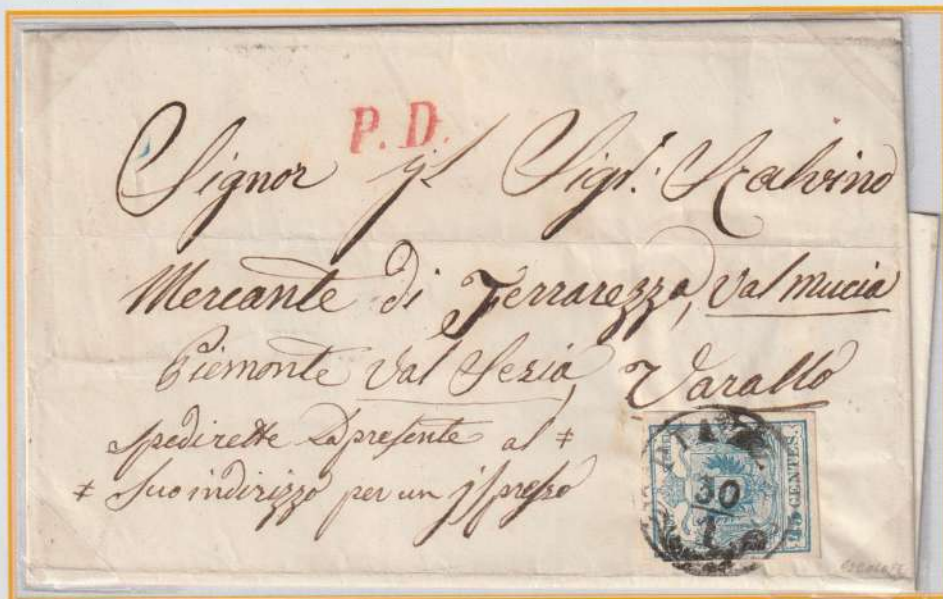 P. D.
Signor Sigr: Scalvino
Mercante di Ferrarezza, Val Mucia
Piemonte Val Sezia, Varallo
spedirette La presente al #
# suo indirizzo per un jspresso
45 CENTES.
30
1